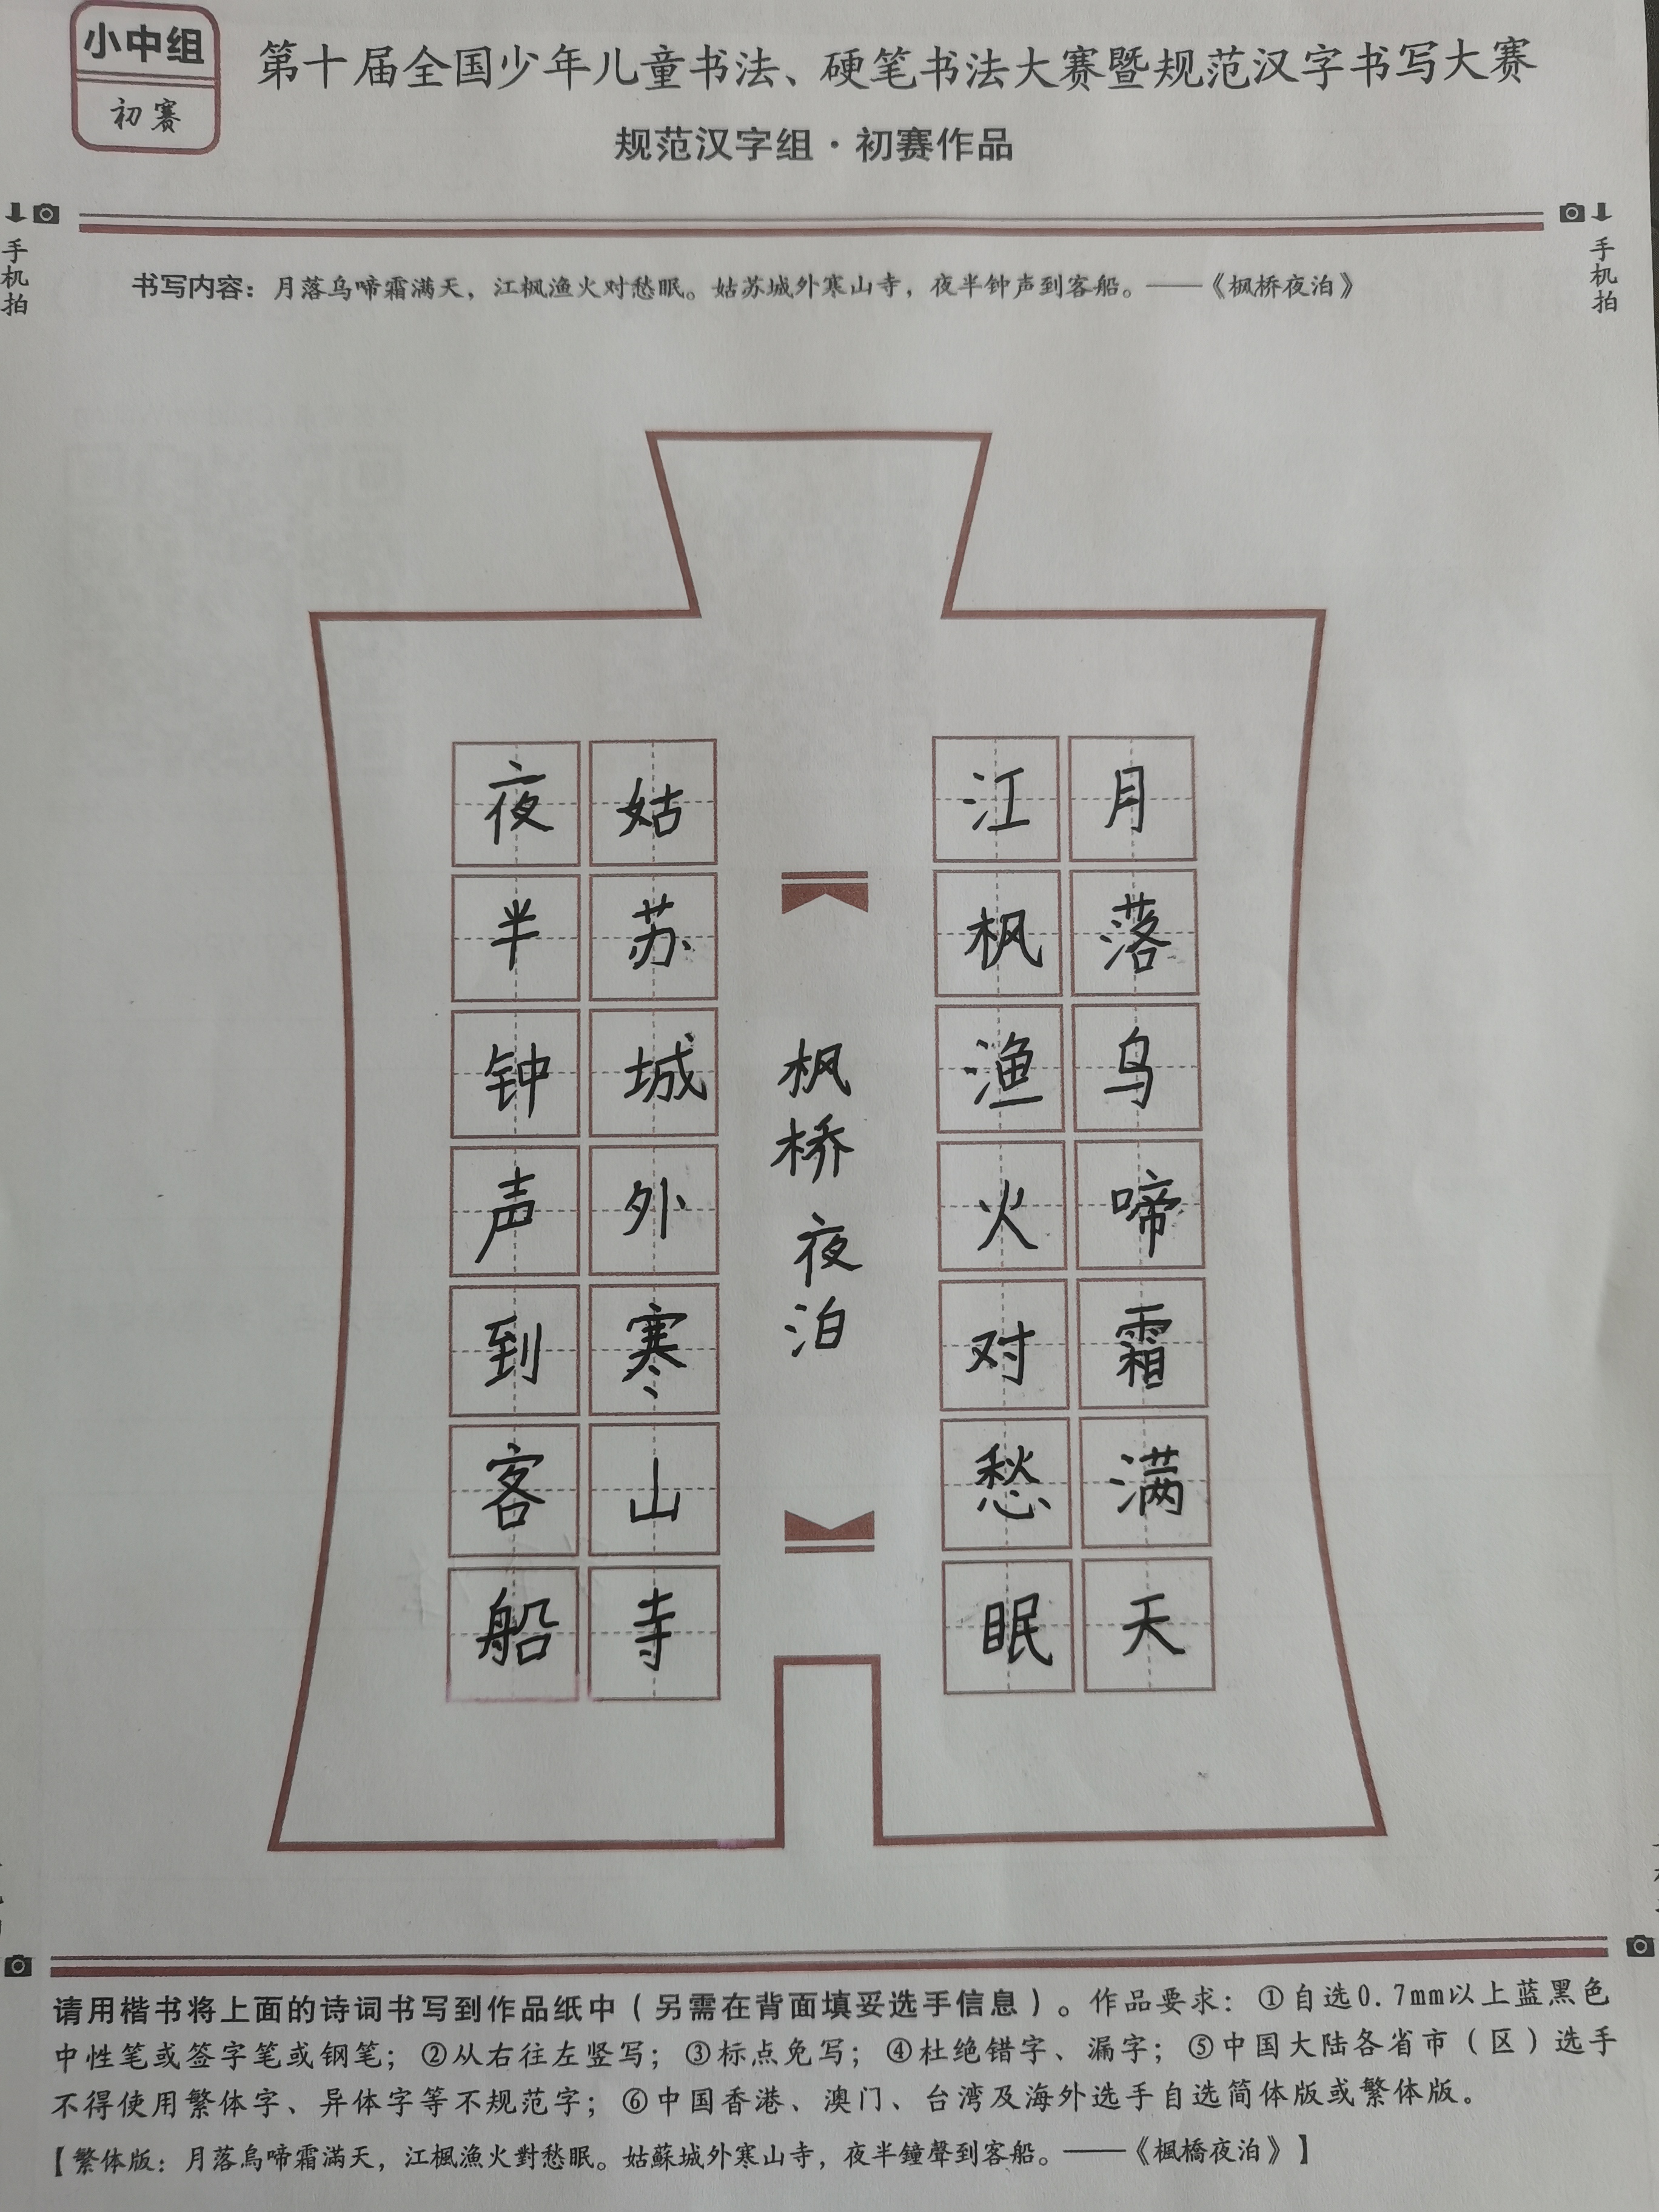 小中组
初赛
第十届全国少年儿童书法、硬笔书法大赛暨规范汉字书写大赛
规范汉字组·初赛作品
手机拍
手机拍
书写内容：月落乌啼霜满天，江枫渔火对愁眠。姑苏城外寒山寺，夜半钟声到客船。——《枫桥夜泊》
月落乌啼霜满天
江枫渔火对愁眠
枫桥夜泊
姑苏城外寒山寺
夜半钟声到客船
请用楷书将上面的诗词书写到作品纸中（另需在背面填妥选手信息）。作品要求：①自选0.7mm以上蓝黑色
中性笔或签字笔或钢笔；②从右往左竖写；③标点免写；④杜绝错字、漏字；⑤中国大陆各省市（区）选手
不得使用繁体字、异体字等不规范字；⑥中国香港、澳门、台湾及海外选手自选简体版或繁体版。
【繁体版：月落烏啼霜滿天，江楓漁火對愁眠。姑蘇城外寒山寺，夜半鐘聲到客船。——《楓橋夜泊》】